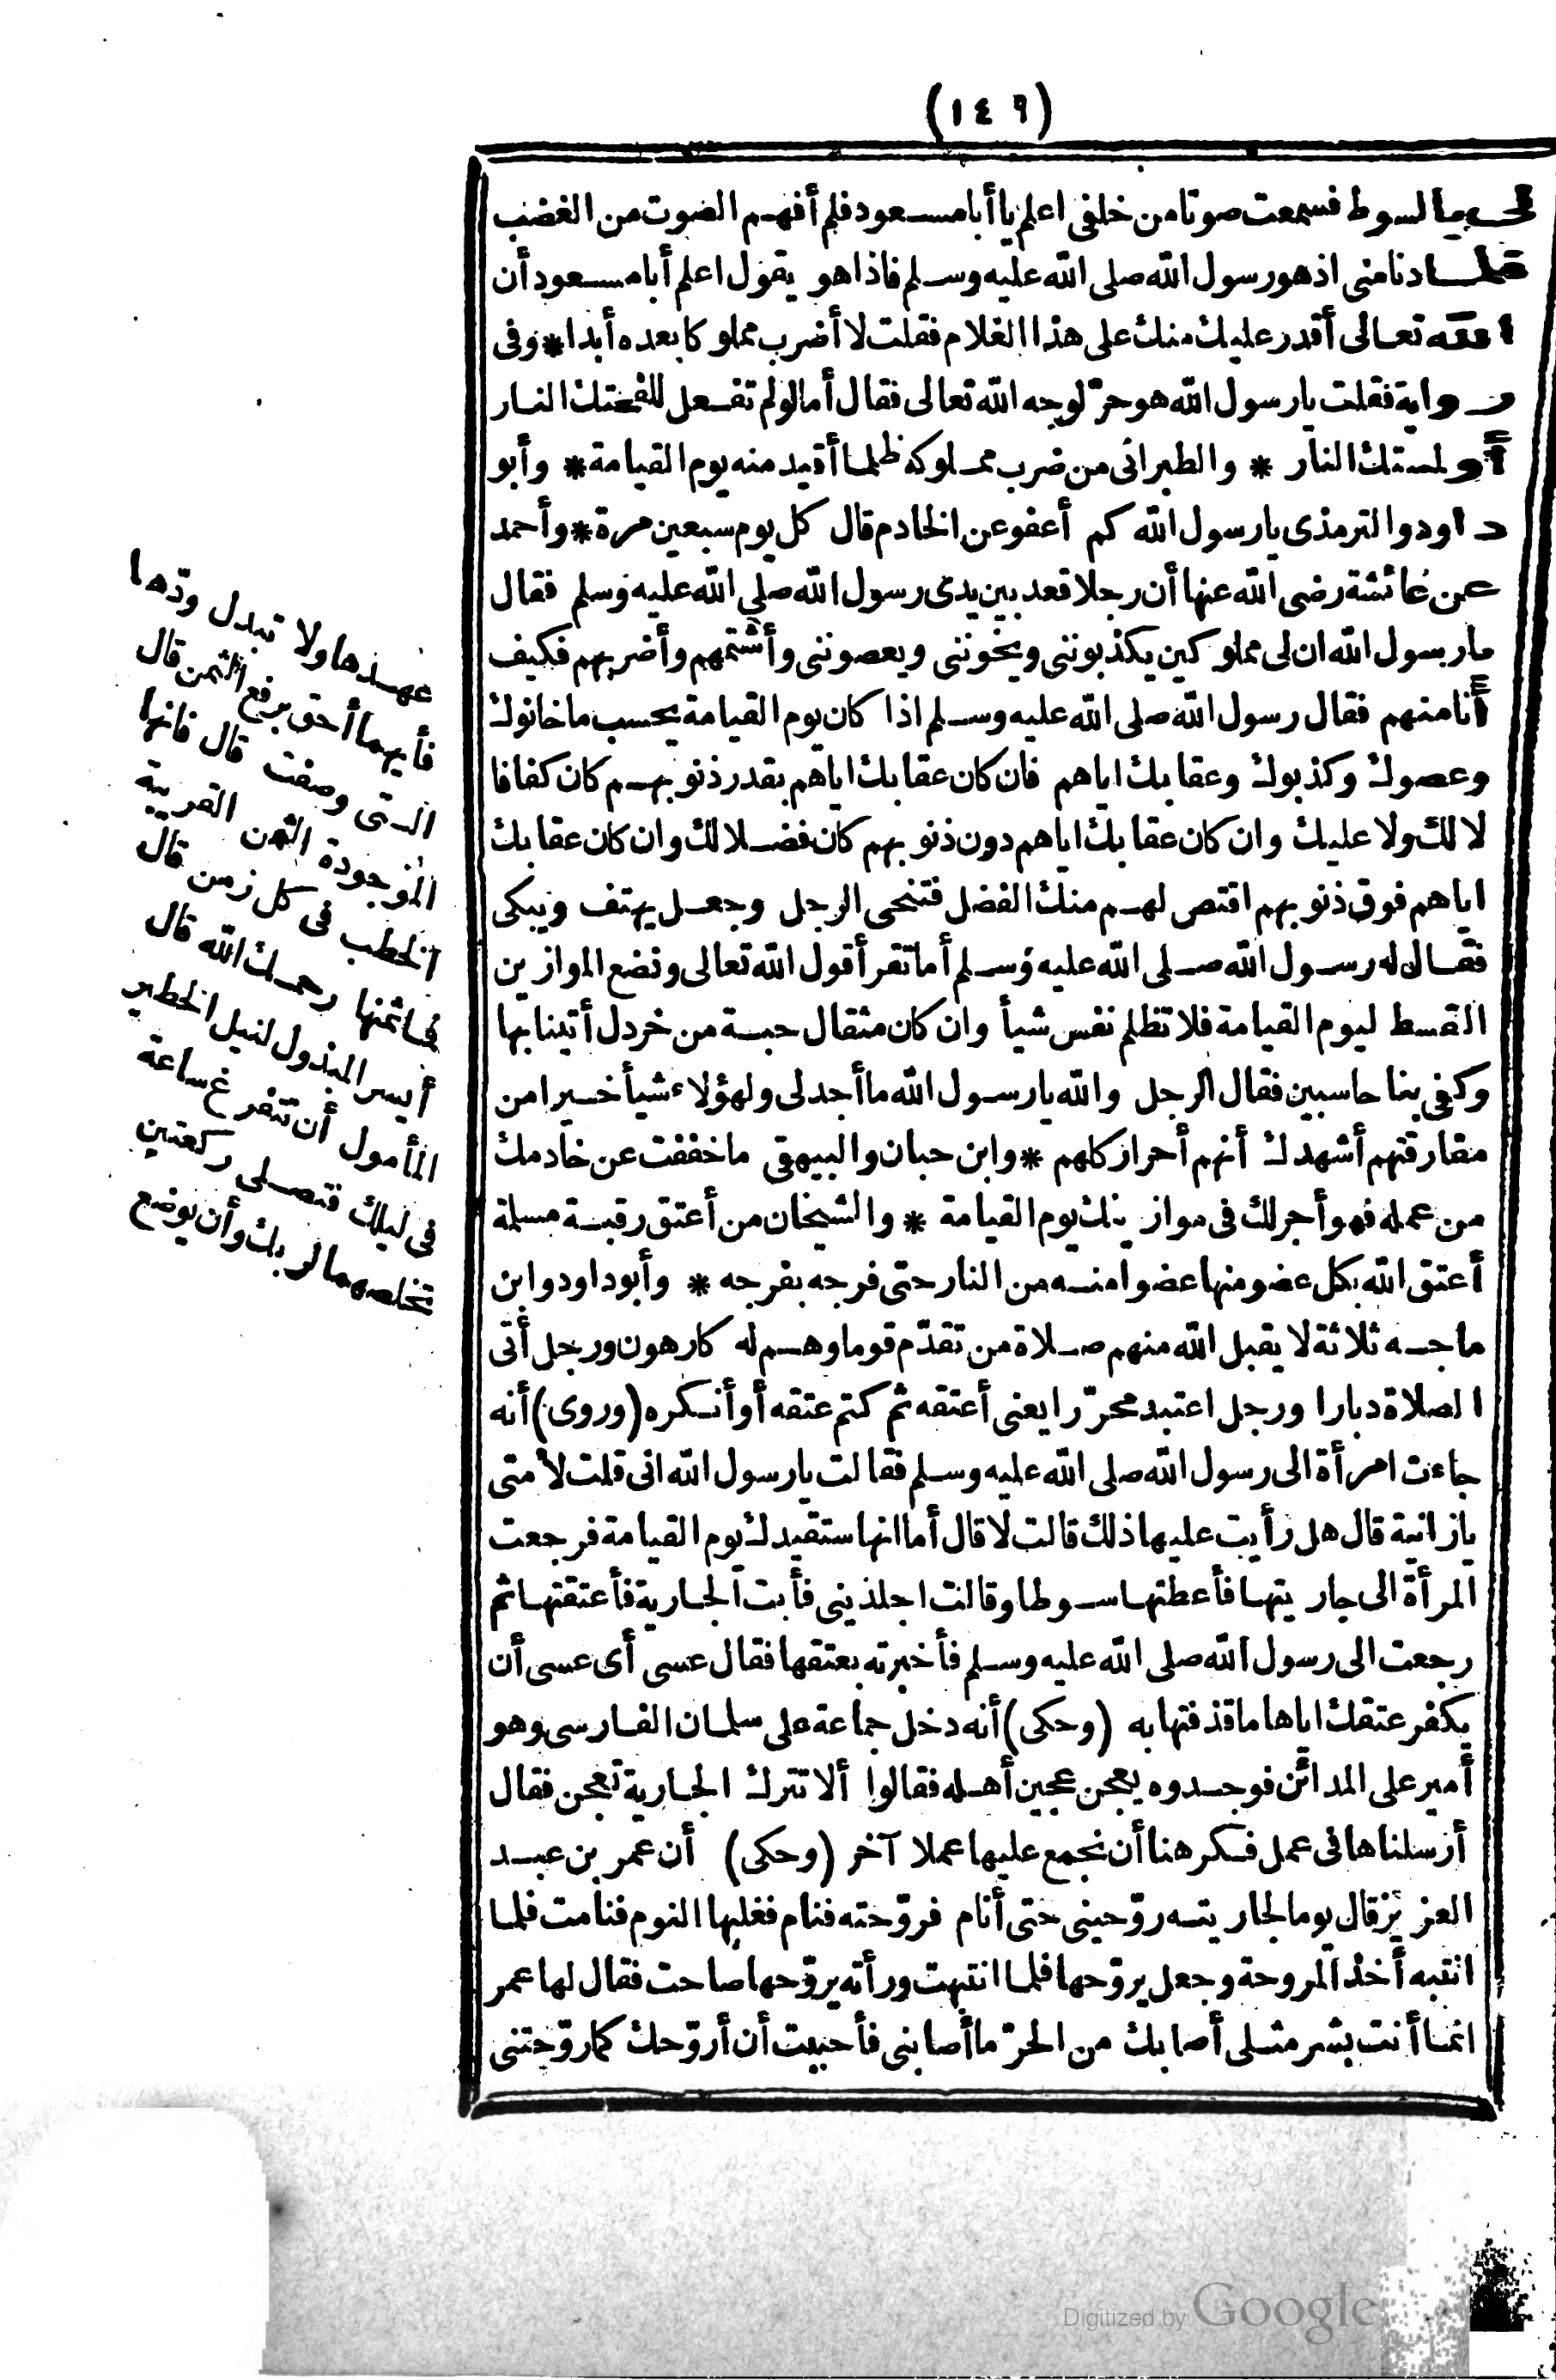 (١٤٩)
لى بالسوط فسمعت صوتا من خلفى اعلم يا أبا مسعود فلم أفهم الصوت من الغضب
فلما دنا منى اذ هو رسول الله صلى الله عليه وسلم فاذا هو يقول اعلم أبا مسعود أن
الله تعالى أقدر عليك منك على هذا الغلام فقلت لا أضرب مملوكا بعده أبدا * وفى
رواية فقلت يا رسول الله هو حرّ لوجه الله تعالى فقال أما لو لم تفعل للفحتك النار
أو لمستك النار * والطبرانى من ضرب مملوكه ظلما أقيد منه يوم القيامة * وأبو
داود والترمذى يا رسول الله كم أعفو عن الخادم قال كل يوم سبعين مرة * وأحمد
عن عائشة رضى الله عنها أن رجلا قعد بين يدى رسول الله صلى الله عليه وسلم فقال
يا رسول الله ان لى مملوكين يكذبوننى ويخوننى ويعصوننى وأشتمهم وأضربهم فكيف
أنا منهم فقال رسول الله صلى الله عليه وسلم اذا كان يوم القيامة يحسب ما خانوك
وعصوك وكذبوك وعقابك اياهم فان كان عقابك اياهم بقدر ذنوبهم كان كفافا
لا لك ولا عليك وان كان عقابك اياهم دون ذنوبهم كان فضلا لك وان كان عقابك
اياهم فوق ذنوبهم اقتص لهم منك الفضل فتنحى الرجل وجعل يهتف ويبكى
فقال له رسول الله صلى الله عليه وسلم أما تقرأ قول الله تعالى ونضع الموازين
القسط ليوم القيامة فلا تظلم نفس شيأ وان كان مثقال حبة من خردل أتينا بها
وكفى بنا حاسبين فقال الرجل والله يا رسول الله ما أجد لى ولهؤلاء شيأ خيرا من
مفارقتهم أشهدك أنهم أحرار كلهم * وابن حبان والبيهقى ما خففت عن خادمك
من عمله فهو أجر لك فى موازينك يوم القيامة * والشيخان من أعتق رقبة مسلمة
أعتق الله بكل عضو منها عضوا منه من النار حتى فرجه بفرجه * وأبو داود وابن
ماجه ثلاثة لا يقبل الله منهم صلاة من تقدّم قوما وهم له كارهون ورجل أتى
الصلاة دبارا ورجل اعتبد محرّرا يعنى أعتقه ثم كتم عتقه أو أنكره (وروى) أنه
جاءت امرأة الى رسول الله صلى الله عليه وسلم فقالت يا رسول الله انى قلت لأمتى
يا زانية قال هل رأيت عليها ذلك قالت لا قال أما انها ستقيدك يوم القيامة فرجعت
المرأة الى جاريتها فأعطتها سوطا وقالت اجلدينى فأبت الجارية فأعتقتها ثم
رجعت الى رسول الله صلى الله عليه وسلم فأخبرته بعتقها فقال عسى أى عسى أن
يكفر عتقك اياها ما قذفتها به (وحكى) أنه دخل جماعة على سلمان الفارسى وهو
أمير على المدائن فوجدوه يعجن عجين أهله فقالوا ألا تترك الجارية تعجن فقال
أرسلناها فى عمل فكرهنا أن نجمع عليها عملا آخر (وحكى) أن عمر بن عبد
العزيز قال يوما لجاريته روّحينى حتى أنام فروّحته فنام فغلبها النوم فنامت فلما
انتبه أخذ المروحة وجعل يروّحها فلما انتبهت ورأته يروّحها صاحت فقال لها عمر
انما أنت بشر مثلى أصابك من الحرّ ما أصابنى فأحببت أن أروّحك كما روّحتنى
عهدها ولا تبدل ودّها
فأيهما أحق برفع الثمن قال
التى وصفت قال فانها
الموجودة الثمن القريبة
الخطب فى كل زمن قال
فما ثمنها رحمك الله قال
أيسر المبذول لنيل الخطير
المأمول أن تتفرغ ساعة
فى ليلك فتصلى ركعتين
تخلصهما لربك وأن يوضع
Digitized by Google